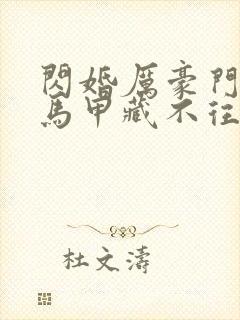 閃婚厲豪門
馬甲藏不往
杜文濤